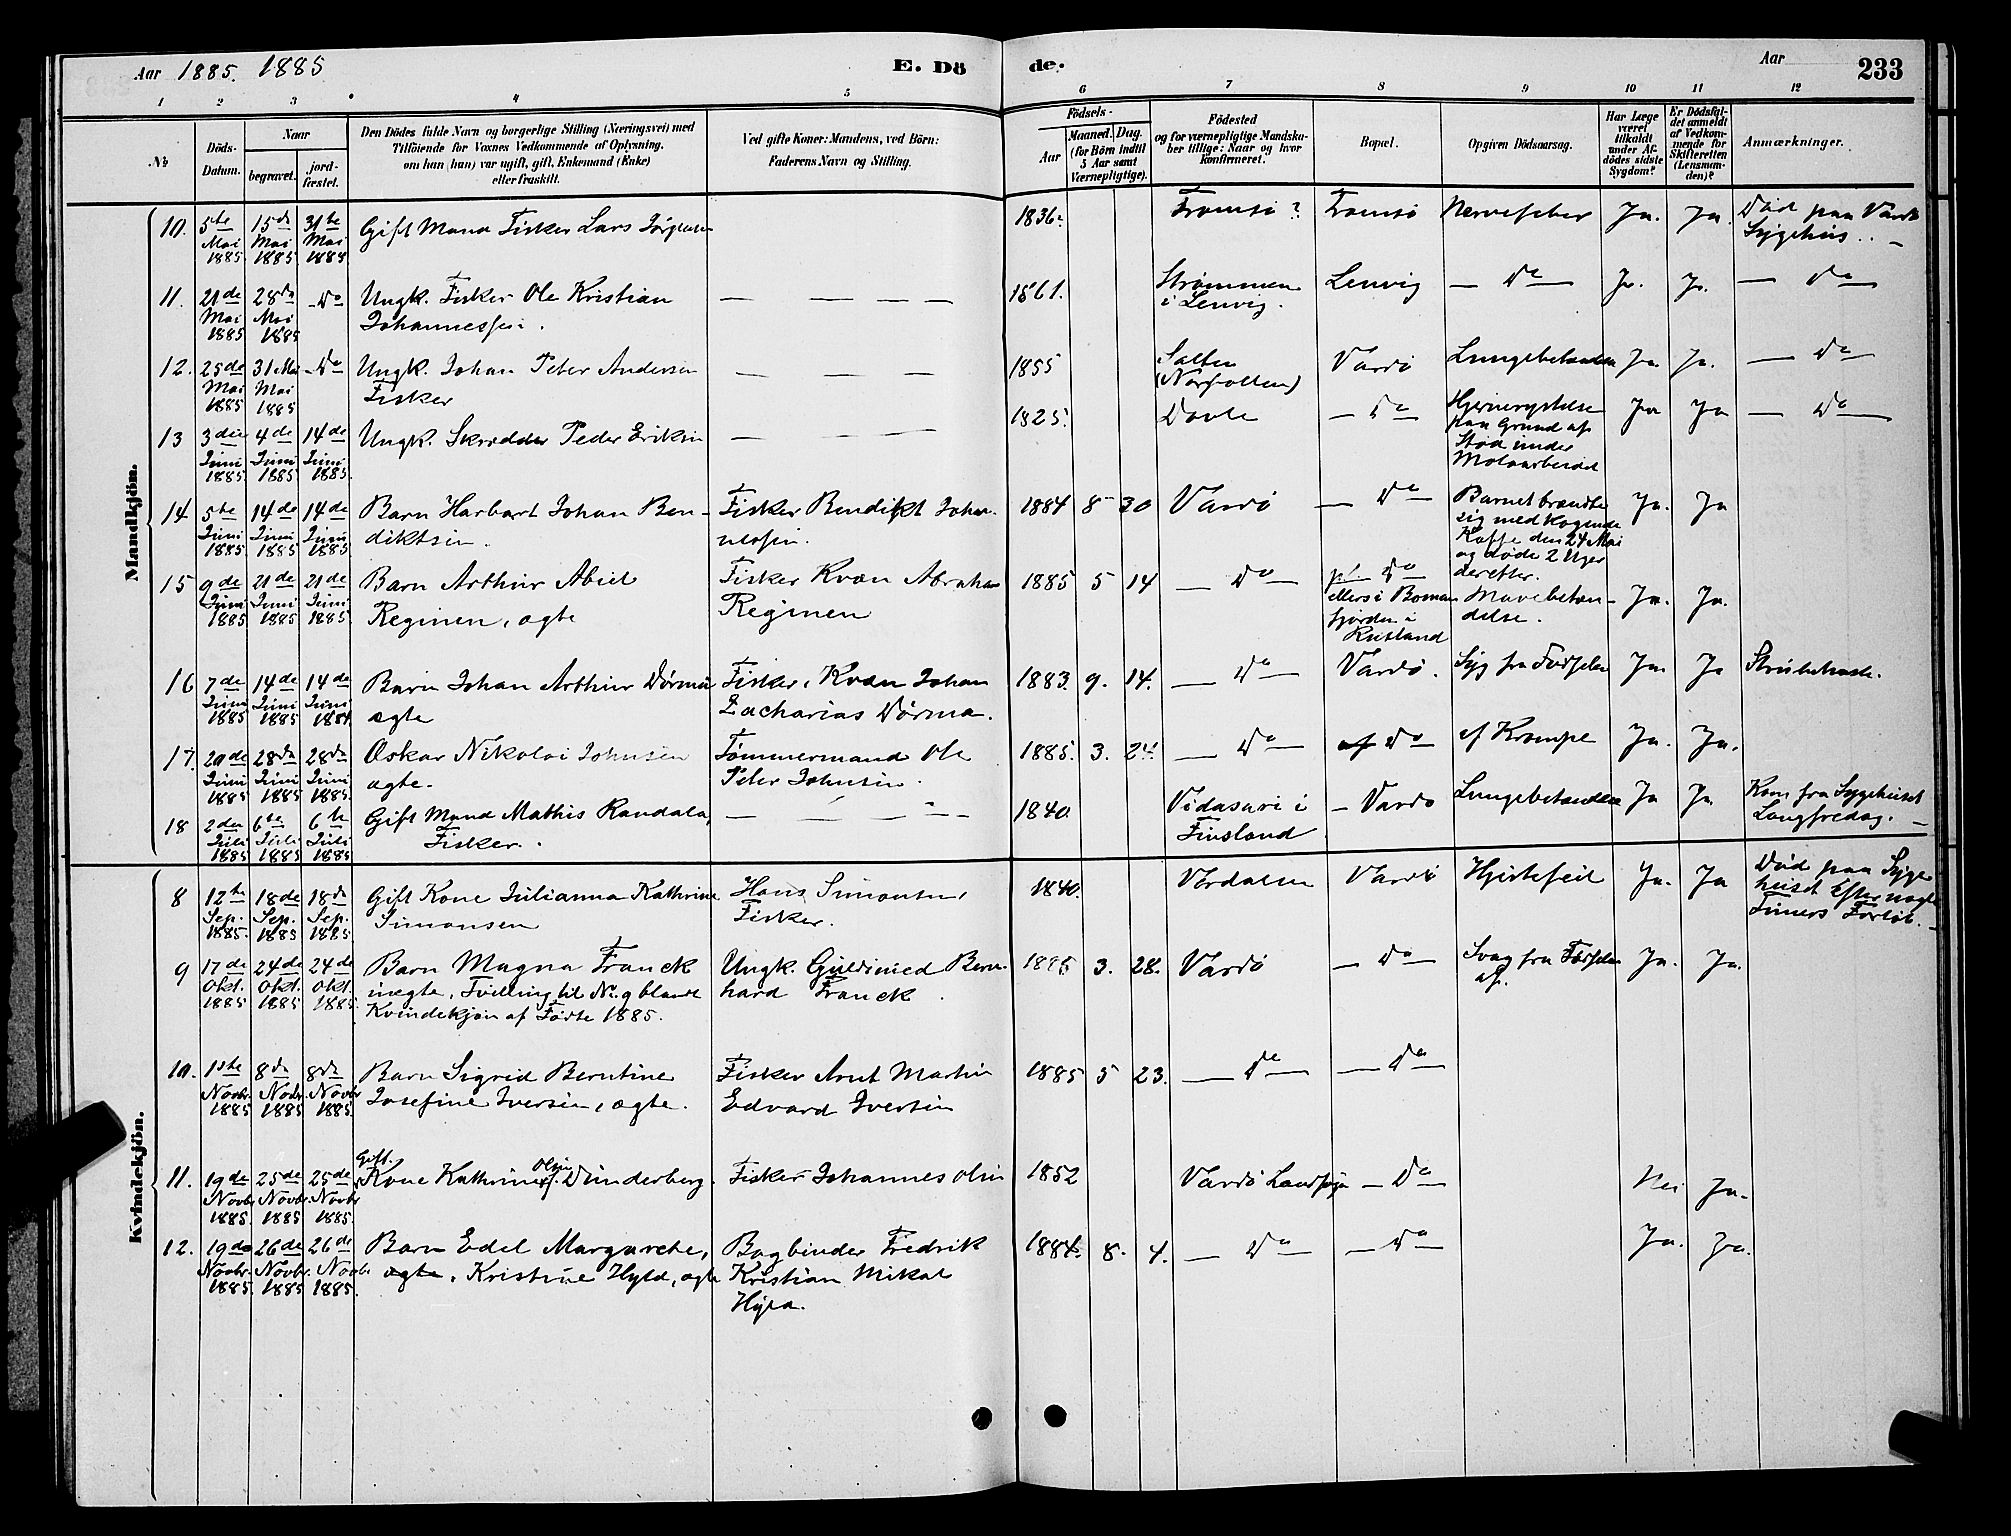 Aar 1885. 1885 E. Dö de. Aar 233
1 2 3 4 5 6 7 8 9 10 11 12
№
Döds-Datum.
Naar
begravet.
jord-fæstet.
Den Dödes fulde Navn og borgerlige Stilling (Næringsvei) med
Tilföiende for Voxnes Vedkommende af Oplysning,
om han (hun) var ugift, gift, Enkemand (Enke)
eller fraskilt.
Ved gifte Koner: Mandens, ved Börn:
Faderens Navn og Stilling.
Födsels-
Aar
Maaned. Dag.
(for Börn indtil
5 Aar samt
Værnepligtige).
Födested
og for værnepligtige Mandska-
ber tillige: Naar og hvor
konfirmeret.
Bopæl.
Opgiven Dödsaarsag.
Har Læge
været
tilkaldt
under Af-
dödes sidste
Sygdom?
Er Dödsfal-
det anmeldt
af Vedkom-
mende for
Skifteretten
(Lensman-
den)?
Anmærkninger.
Mandkjön.
10. 5te 15de 31te Gift Mand Fisker Lars Jörgensen 1836. Tromsö? Tromsö Nervefeber Ja. Ja. Död paa Vardö
Mai Mai Mai Sygehus.
1885 1885 1885
11. 21de 28de Do Ungk. Fisker Ole Kristian — — — — 1861. Strömmen Lenvig — Do — Ja. Ja. — Do
Mai Mai Johannessen. i Lenvig.
1885 1885
12. 25de 31 Mai Do Ungk. Johan Peter Andersen — — — — 1855 Salten Vardö Lungebetændelse Ja. Ja. — Do
Mai Mai Fisker (Norfolden)
1885 1885
13 3die 4de 14de Ungk. Skrædder Peder Eriksen — — — 1825. Dovre — Do Hjernerystelse Ja Ja — Do
Juni Juni Juni paa Grund af
1885 1885 1885. Stød under
Moloarbeidet
14 5te 14de 14de Barn Harbart Johan Ben- Fisker Bendikt Johan- 1884 8 30 Vardö — Do Barnet brændte Ja. Ja
Juni Juni Juni diktsen. nesen. sig med kogende
1885 1885 1885 Kaffe den 24 Mai
og döde 2 Uger
derefter.
15 9de 21de 21de Barn Arthur Abiel Fisker Kvæn Abraham 1885 5 14 — Do — Do Mavebetæn- Ja. Ja.
Juni Juni Juni Reginen, ægte Reginen ellers i Boman- delse.
1885 1885 1885. fjorden i
Rusland
16 7de 14de 14de Barn Johan Arthur Dörma Fisker, Kvæn Johan 1883. 9. 14. — Do — Vardö. Syg fra Födselen Ja. Ja Strubehoste.
Juni Juni Juni ægte Zacharias Dörma.
1885 1885
17. 20de 28de 28de Oskar Nikolai Johnsen Tömmermand Ole 1885. 3. 24. — Do — Do af Krampe Ja. Ja.
Juni Juni Juni ægte. Peter Johnsen.
1885 1885 1885.
18 2den 6te 6te Gift Mand Mathis Randala, — — — — 1840. Vidasari i — Vardö Lungebetændelse Ja Ja Kom fra Sygehuset
Juli Juli Juli Fisker. Finsland Langfredag.
1885 1885 1885
Kvindekjön.
8 12te 18de 18de Gift Kone Julianna Kathrine Hans Simonsen, 1840. Værdalen Vardö Hjertefeil Ja. Ja Död paa Syge-
Sep. Sep. Sep. Simonsen Fisker. huset Efter nogle
1885. 1885 1885 Timers Forlöb.
9 17de 24de 24de Barn Magna Franck Ungk. Bern- 1885 3. 28. Vardö — Do — Svag fra Födselen Ja. Ja.
Okt. Okt. Okt. uægte, Tvilling til No. 9 blandt hard Franck. af.
1885 1885 1885. Kvindekjön af Födte 1885.
10. 1ste 8de 8de Barn Sigrid Berntine Fisker Arnt Martin 1885 5 23. — Do — — Do
Novbr. Novbr. Novbr Josefine Iversen, ægte. Edvard Iversen
1885 1885 1885.
11. 19de 25de 25de Gift Kone Kathrine Olsen f. Dunderberg. Fisker Johannes Olsen 1852 Vardö Landsogn — Do — Nei Ja.
Novbr Novbr Novbr
1885. 1885 1885.
12. 19de 26de 26de Barn Edel Margarethe, Bogbinder Fredrik 1884. 8. 4. — Do — — Do — Ja. Ja.
Novbr. Novbr. Novbr. ægte, Kristine Hyld, ægte Kristian Mikal
1885. 1885 1885. Hyld.